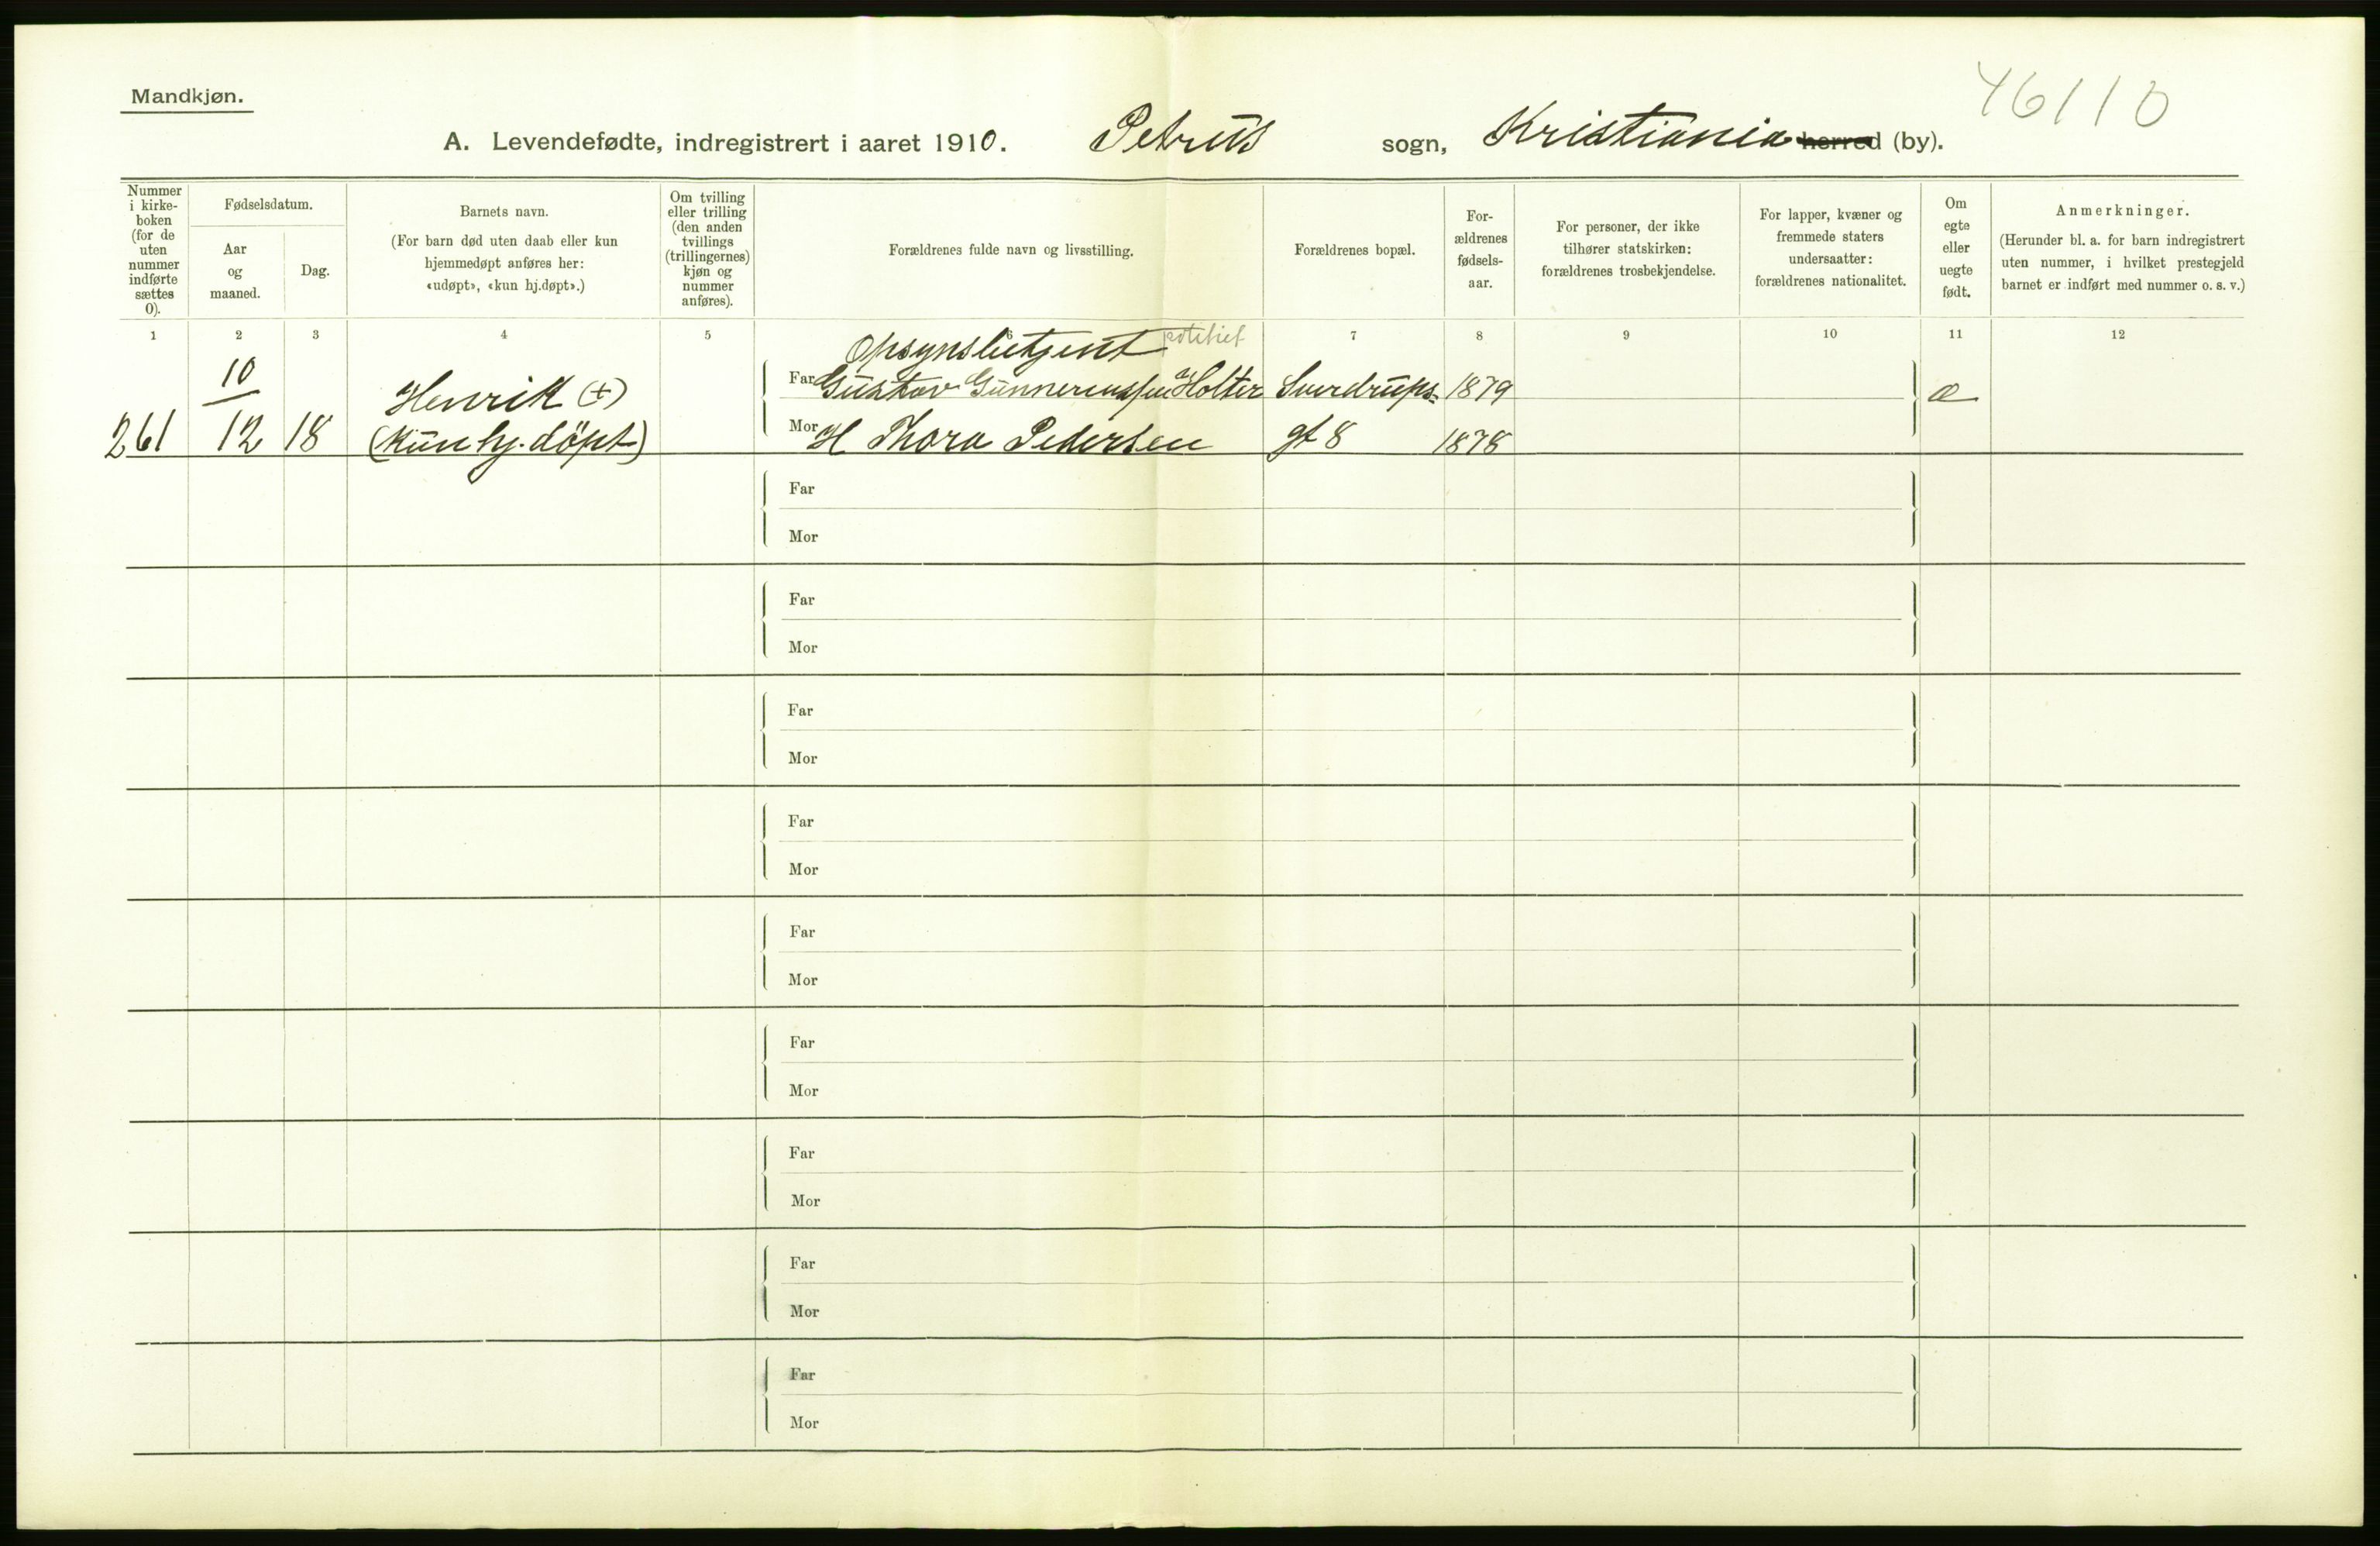 Mandkjøn.
46110
A. Levendefødte, indregistrert i aaret 1910. Petrus sogn, Kristiania herred (by).
Nummer i kirke- boken (for de uten nummer indførte sættes 0).
Fødselsdatum.
Aar og maaned.
Dag.
Barnets navn.
(For barn død uten daab eller kun hjemmedøpt anføres her: «udøpt», «kun hj.døpt».)
Om tvilling eller trilling (den anden tvillings (trillingernes) kjøn og nummer anføres).
Forældrenes fulde navn og livsstilling.
Forældrenes bopæl.
For- ældrenes fødsels- aar.
For personer, der ikke tilhører statskirken: forældrenes trosbekjendelse.
For lapper, kvæner og fremmede staters undersaatter: forældrenes nationalitet.
Om egte eller uegte født.
Anmerkninger.
(Herunder bl. a. for barn indregistrert uten nummer, i hvilket prestegjeld barnet er indført med nummer o. s. v.)
1 2 3 4 5 6 7 8 9 10 11 12
Opsynsbetjent politiet
10 Henrik (+) Far Gustav Gunneriussen Holter Sverdrups- 1879 æ
261 12 18 (kun hj. døpt) Mor H Thora Pedersen gt 8 1878
Far
Mor
Far
Mor
Far
Mor
Far
Mor
Far
Mor
Far
Mor
Far
Mor
Far
Mor
Far
Mor